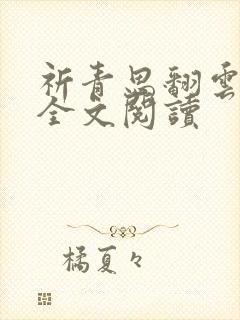 祈青思翻雲
全文閱讀
橘夏々